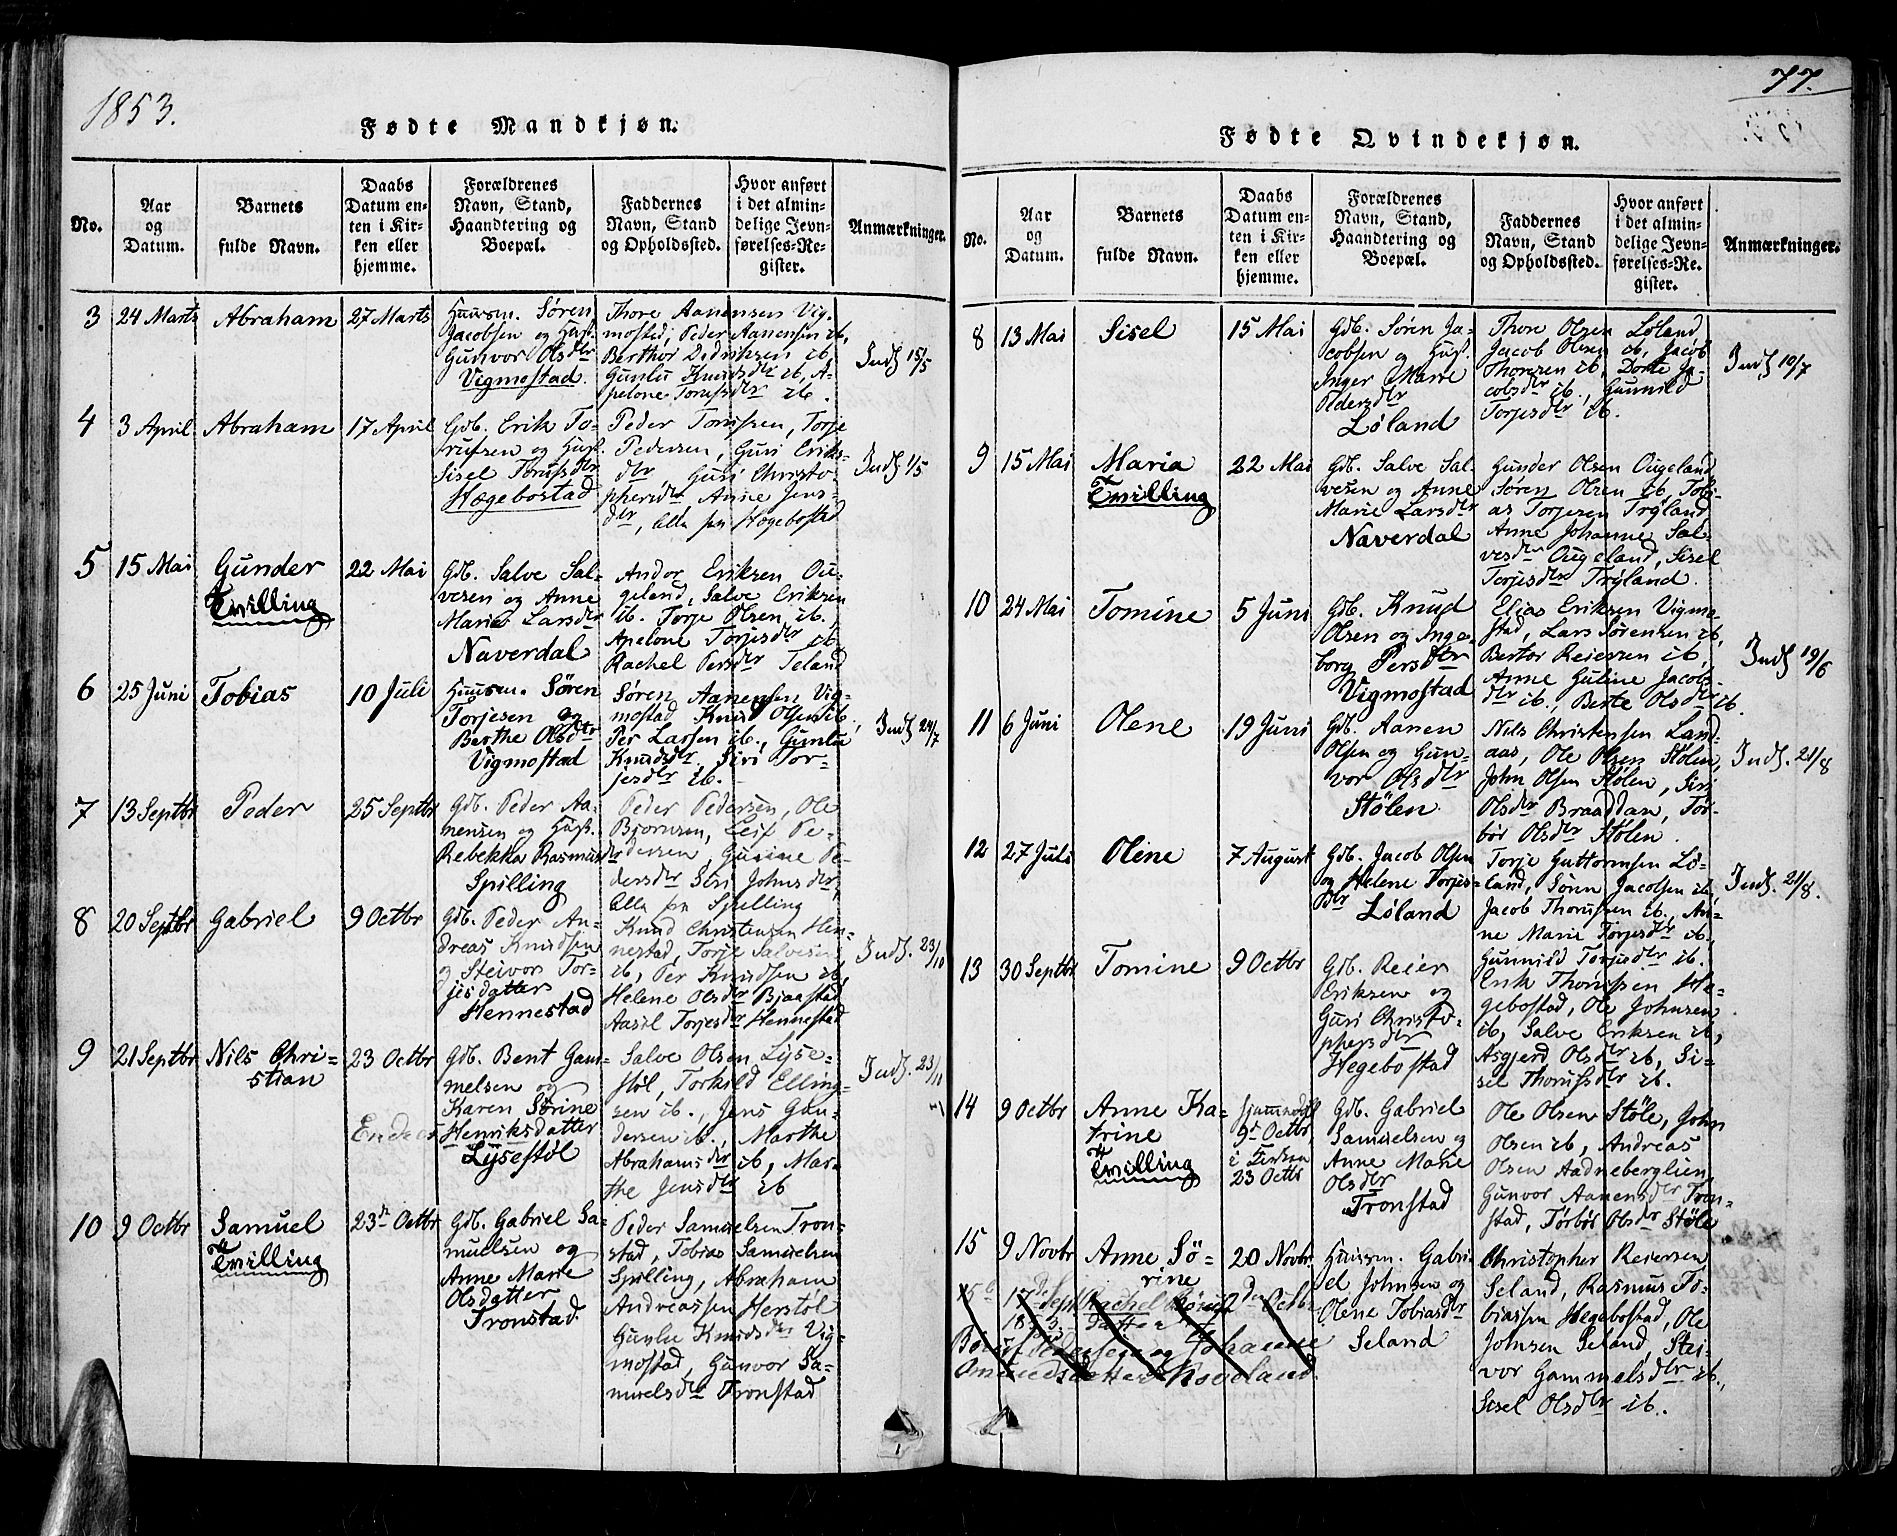 1853.
Fødte Mandkjøn.
No.
Aar og Datum.
Barnets fulde Navn.
Daabs Datum enten i Kirken eller hjemme.
Forældrenes Navn, Stand, Haandtering og Boepæl.
Faddernes Navn, Stand og Opholdssted.
Hvor anført i det almindelige Jevnførelses-Register.
Anmærkninger.
3 24 Marts Abraham 27 Marts
Huusm. Søren
Jacobsen og Hust.
Gunvor Olsdtr
Vigmostad.
Thore Aanensen Vig-
mostad, Peder Aanensen ib,
Berthor Didriksen ib,
Gunlu Knudsdtr ib, A-
pelone Torufsdtr ib.
Inds 15/5
4 3 April Abraham 17 April
Gdb. Erik To-
rufsen og Hust.
Sisel Torufsdtr
Hægebostad
Peder Torufsen, Torje
Pedersen, Guri Eriks-
dtr, Guri Christo-
phersdtr, Anne Jens-
dtr, Alle fra Hægebostad
Inds 1/5
5 15 Mai Gunder 22 Mai
Tvilling
Gdb. Salve Sal-
vesen og Anne
Marie Larsdtr
Naverdal
Andor Eriksen Ou-
geland, Salve Eriksen
ib. Torje Olsen ib.,
Apelone Torjesdtr ib
Rachel Persdtr Teland
6 25 Juni Tobias 10 Juli
Huusm. Søren
Torjesen og
Berthe Olsdtr
Vigmostad
Søren Aanensen Vig-
mostad, Knud Olsen ib,
Per Larsen ib., Gunlu
Knudsdtr, Siri Tor-
jesdtr ib.
Inds 24/7
7 13 Septbr Peder 25 Septbr
Gdb. Peder Aa-
nensen og Hust.
Rebekka Rasmusdtr
Spilling
Peder Pedersen, Ole
Bjornsen, Leif Pe-
dersen, Gurine Pe-
dersdtr Siri Johnsdtr,
Alle fra Spilling
8 20 Septbr Gabriel 9 Octbr
Gdb. Peder An-
dreas Knudsen
og Steivor Tor-
jesdatter
Hennestad
Knud Christensen Hen-
nestad, Torje Salvesen
ib, Per Knudsen ib,
Helene Olsdtr Bjaastad,
Aasil Torjesdtr Hennestad
Inds. 23/10
9 21 Septbr Nils Chri-
stian 23 Octbr
Gdb. Bent Gam-
melsen og
Karen Sørine
Henriksdatter
Lysestøl
Salve Olsen Lyse-
støl, Torkild Elling-
sen ib., Jens Gun-
dersen ib., Marthe
Abrahamsdtr ib, Mar-
the Jensdtr ib
Inds. 23/11
10 9 Octbr Samuel 23de Octbr
Tvilling
Gdb. Gabriel Sa-
muelsen og
Anne Marie
Olsdatter
Tronstad.
Peder Samuelsen Tron-
stad, Tobias Samuelsen
Spilling, Abraham
Andreassen Herstøl
Gunlu Knudsdtr Vig-
mostad, Gunvor Sa-
muelsdtr Tronstad
77.
Fødte Qvindekjøn.
No.
Aar og Datum.
Barnets fulde Navn.
Daabs Datum enten i Kirken eller hjemme.
Forældrenes Navn, Stand, Haandtering og Boepæl.
Faddernes Navn, Stand og Opholdssted.
Hvor anført i det almindelige Jevnførelses-Register.
Anmærkninger.
8 13 Mai Sisel 15 Mai
Gdb. Søren Ja-
cobsen og Hust.
Inger Marie
Pedersdtr
Løland
Thore Olsen Løland
Jacob Olsen ib, Jacob
Thoresen ib, Dorte Ja-
cobsdtr ib., Gunnild
Torjesdtr ib.
Inds 10/7
9 15 Mai Maria 22 Mai
Tvilling
Gdb. Salve Sal-
vesen og Anne
Marie Larsdtr
Naverdal
Gunder Olsen Ougeland
Søren Olsen ib, Tobi-
as Torjesen Tryland
Anne Johanne Sal-
vesdtr Ougeland, Sisel
Torjesdtr Tryland.
10 24 Mai Tomine 5 Juni
Gdb. Knud
Olsen og Inge-
borg Persdtr
Vigmostad
Elias Eriksen Vigmo-
stad, Lars Sørensen ib,
Bertor Reiersen ib,
Anne Guline Jacobs-
dtr ib., Berte Olsdtr ib.
Inds 19/6
11 6 Juni Olene 19 Juni
Gdb. Aanen
Olsen og Gun-
vor Olsdtr
Stølen.
Nils Christensen Land-
aas, Ole Olsen Stølen,
John Olsen Stølen, Siri
Olsdtr Braaddan, Tor-
bør Olsdtr Stølen.
Inds. 21/8
12 27 Juli Olene 7 August
Gdb. Jacob Olsen
og Helene Torjes-
dtr Løland
Torje Guttormsen Lø-
land, Søren Jacobsen ib,
Jacob Thorufsen ib., An-
ne Marie Torjesdtr ib,
Gunnild Torjesdtr ib.
Inds. 21/8.
13 30 Septbr Tomine 9 Octbr
Gdb. Reier
Eriksen og
Guri Christo-
phersdtr
Hegebostad
Erik Thorufsen He-
gebostad, Ole Johnsen
ib, Salve Eriksen ib,
Asgjerd Olsdtr ib, Si-
sel Thorufsdtr ib.
14 9 Octbr Anne Ka-
trine
Tvilling
hjemmedøbt
9de Octbr
i Kirken
23 Octbr
Gdb. Gabriel
Samuelsen og
Anne Marie
Olsdtr
Tronstad
Ole Olsen Støle, John
Olsen ib, Andreas
Olsen Aadneberglien
Gunvor Aanensdtr Tron-
stad, Tørbør Olsdtr Støle
15 9 Novbr Anne Sø-
rine 20 Novbr
Huusm. Gabri-
el Johnsen og
Olene Tobiasdtr
Seland
Christopher Reiersen
Seland, Rasmus To-
biassen Hegebostad, Ole
Johnsen Seland, Stei-
vor Gammelsdtr ib.,
Sisel Olsdtr ib.
15b 17de Sept Rachel 2den Octb
1853
Pedersen og Johanne
Omundsdatter Hovland.